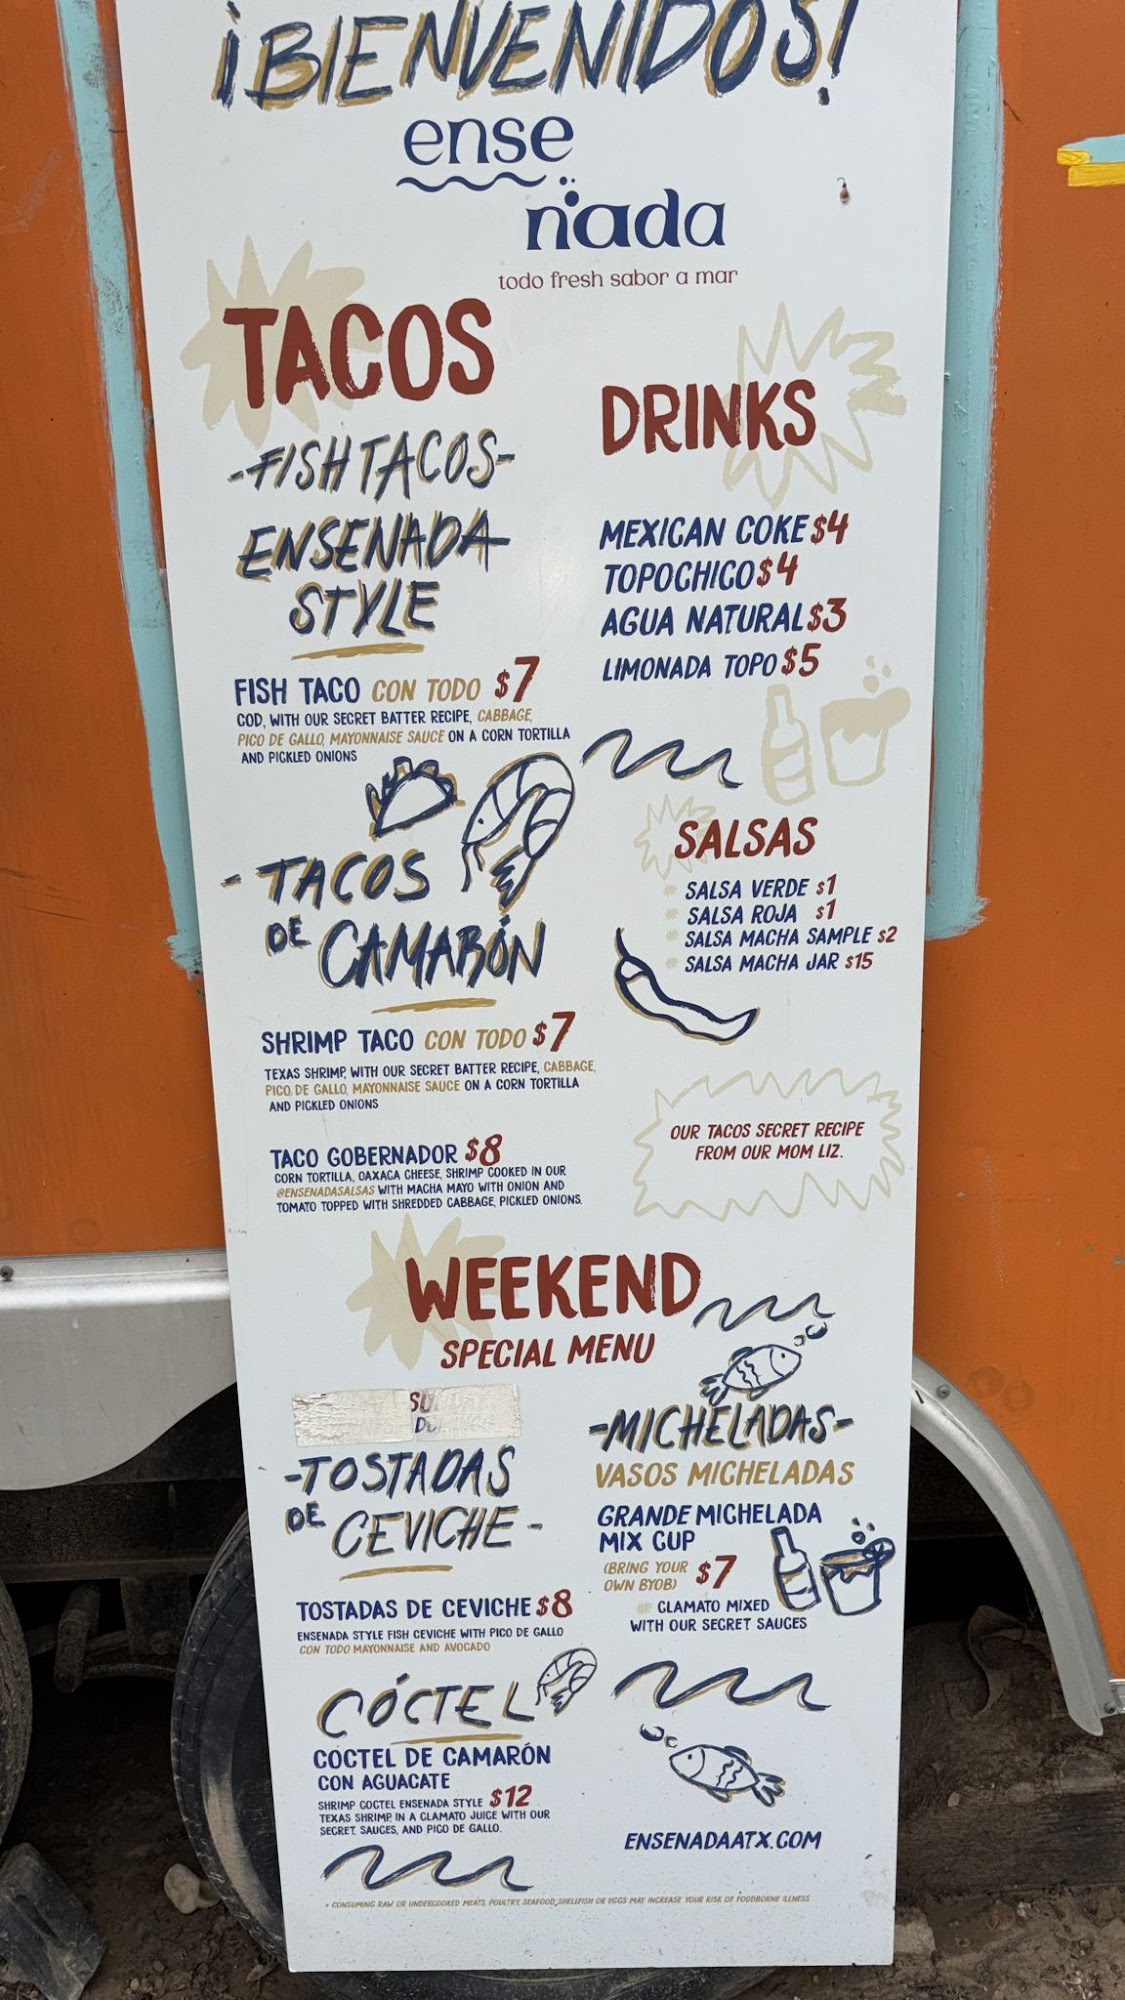 ¡BIENVENIDOS!
ense
nada
todo fresh sabor a mar
TACOS
-FISH TACOS-
ENSENADA
STYLE
FISH TACO CON TODO $7
COD, WITH OUR SECRET BATTER RECIPE, CABBAGE,
PICO DE GALLO, MAYONNAISE SAUCE ON A CORN TORTILLA
AND PICKLED ONIONS
- TACOS
DE CAMARÓN
SHRIMP TACO CON TODO $7
TEXAS SHRIMP, WITH OUR SECRET BATTER RECIPE, CABBAGE,
PICO DE GALLO, MAYONNAISE SAUCE ON A CORN TORTILLA
AND PICKLED ONIONS
TACO GOBERNADOR $8
CORN TORTILLA, OAXACA CHEESE, SHRIMP COOKED IN OUR
@ENSENADASALSAS WITH MACHA MAYO WITH ONION AND
TOMATO TOPPED WITH SHREDDED CABBAGE, PICKLED ONIONS.
DRINKS
MEXICAN COKE $4
TOPOCHICO $4
AGUA NATURAL $3
LIMONADA TOPO $5
SALSAS
SALSA VERDE $1
SALSA ROJA $1
SALSA MACHA SAMPLE $2
SALSA MACHA JAR $15
OUR TACOS SECRET RECIPE
FROM OUR MOM LIZ.
WEEKEND
SPECIAL MENU
-TOSTADAS
DE CEVICHE-
TOSTADAS DE CEVICHE $8
ENSENADA STYLE FISH CEVICHE WITH PICO DE GALLO
CON TODO MAYONNAISE AND AVOCADO
CÓCTEL
COCTEL DE CAMARÓN
CON AGUACATE
SHRIMP COCTEL ENSENADA STYLE $12
TEXAS SHRIMP, IN A CLAMATO JUICE WITH OUR
SECRET SAUCES, AND PICO DE GALLO.
-MICHELADAS-
VASOS MICHELADAS
GRANDE MICHELADA
MIX CUP
(BRING YOUR
OWN BYOB) $7
CLAMATO MIXED
WITH OUR SECRET SAUCES
ENSENADAATX.COM
* CONSUMING RAW OR UNDERCOOKED MEATS, POULTRY, SEAFOOD, SHELLFISH OR EGGS MAY INCREASE YOUR RISK OF FOODBORNE ILLNESS